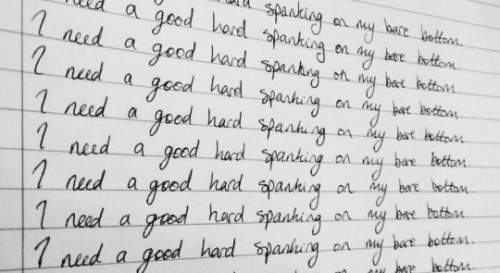 need a good hard spanking on my bare bottom.
I need a good hard spanking on my bare bottom.
I need a good hard spanking on my bare bottom.
I need a good hard spanking on my bare bottom.
I need a good hard spanking on my bare bottom.
I need a good hard spanking on my bare bottom.
I need a good hard spanking on my bare bottom.
I need a good hard spanking on my bare bottom.
bare bottom.